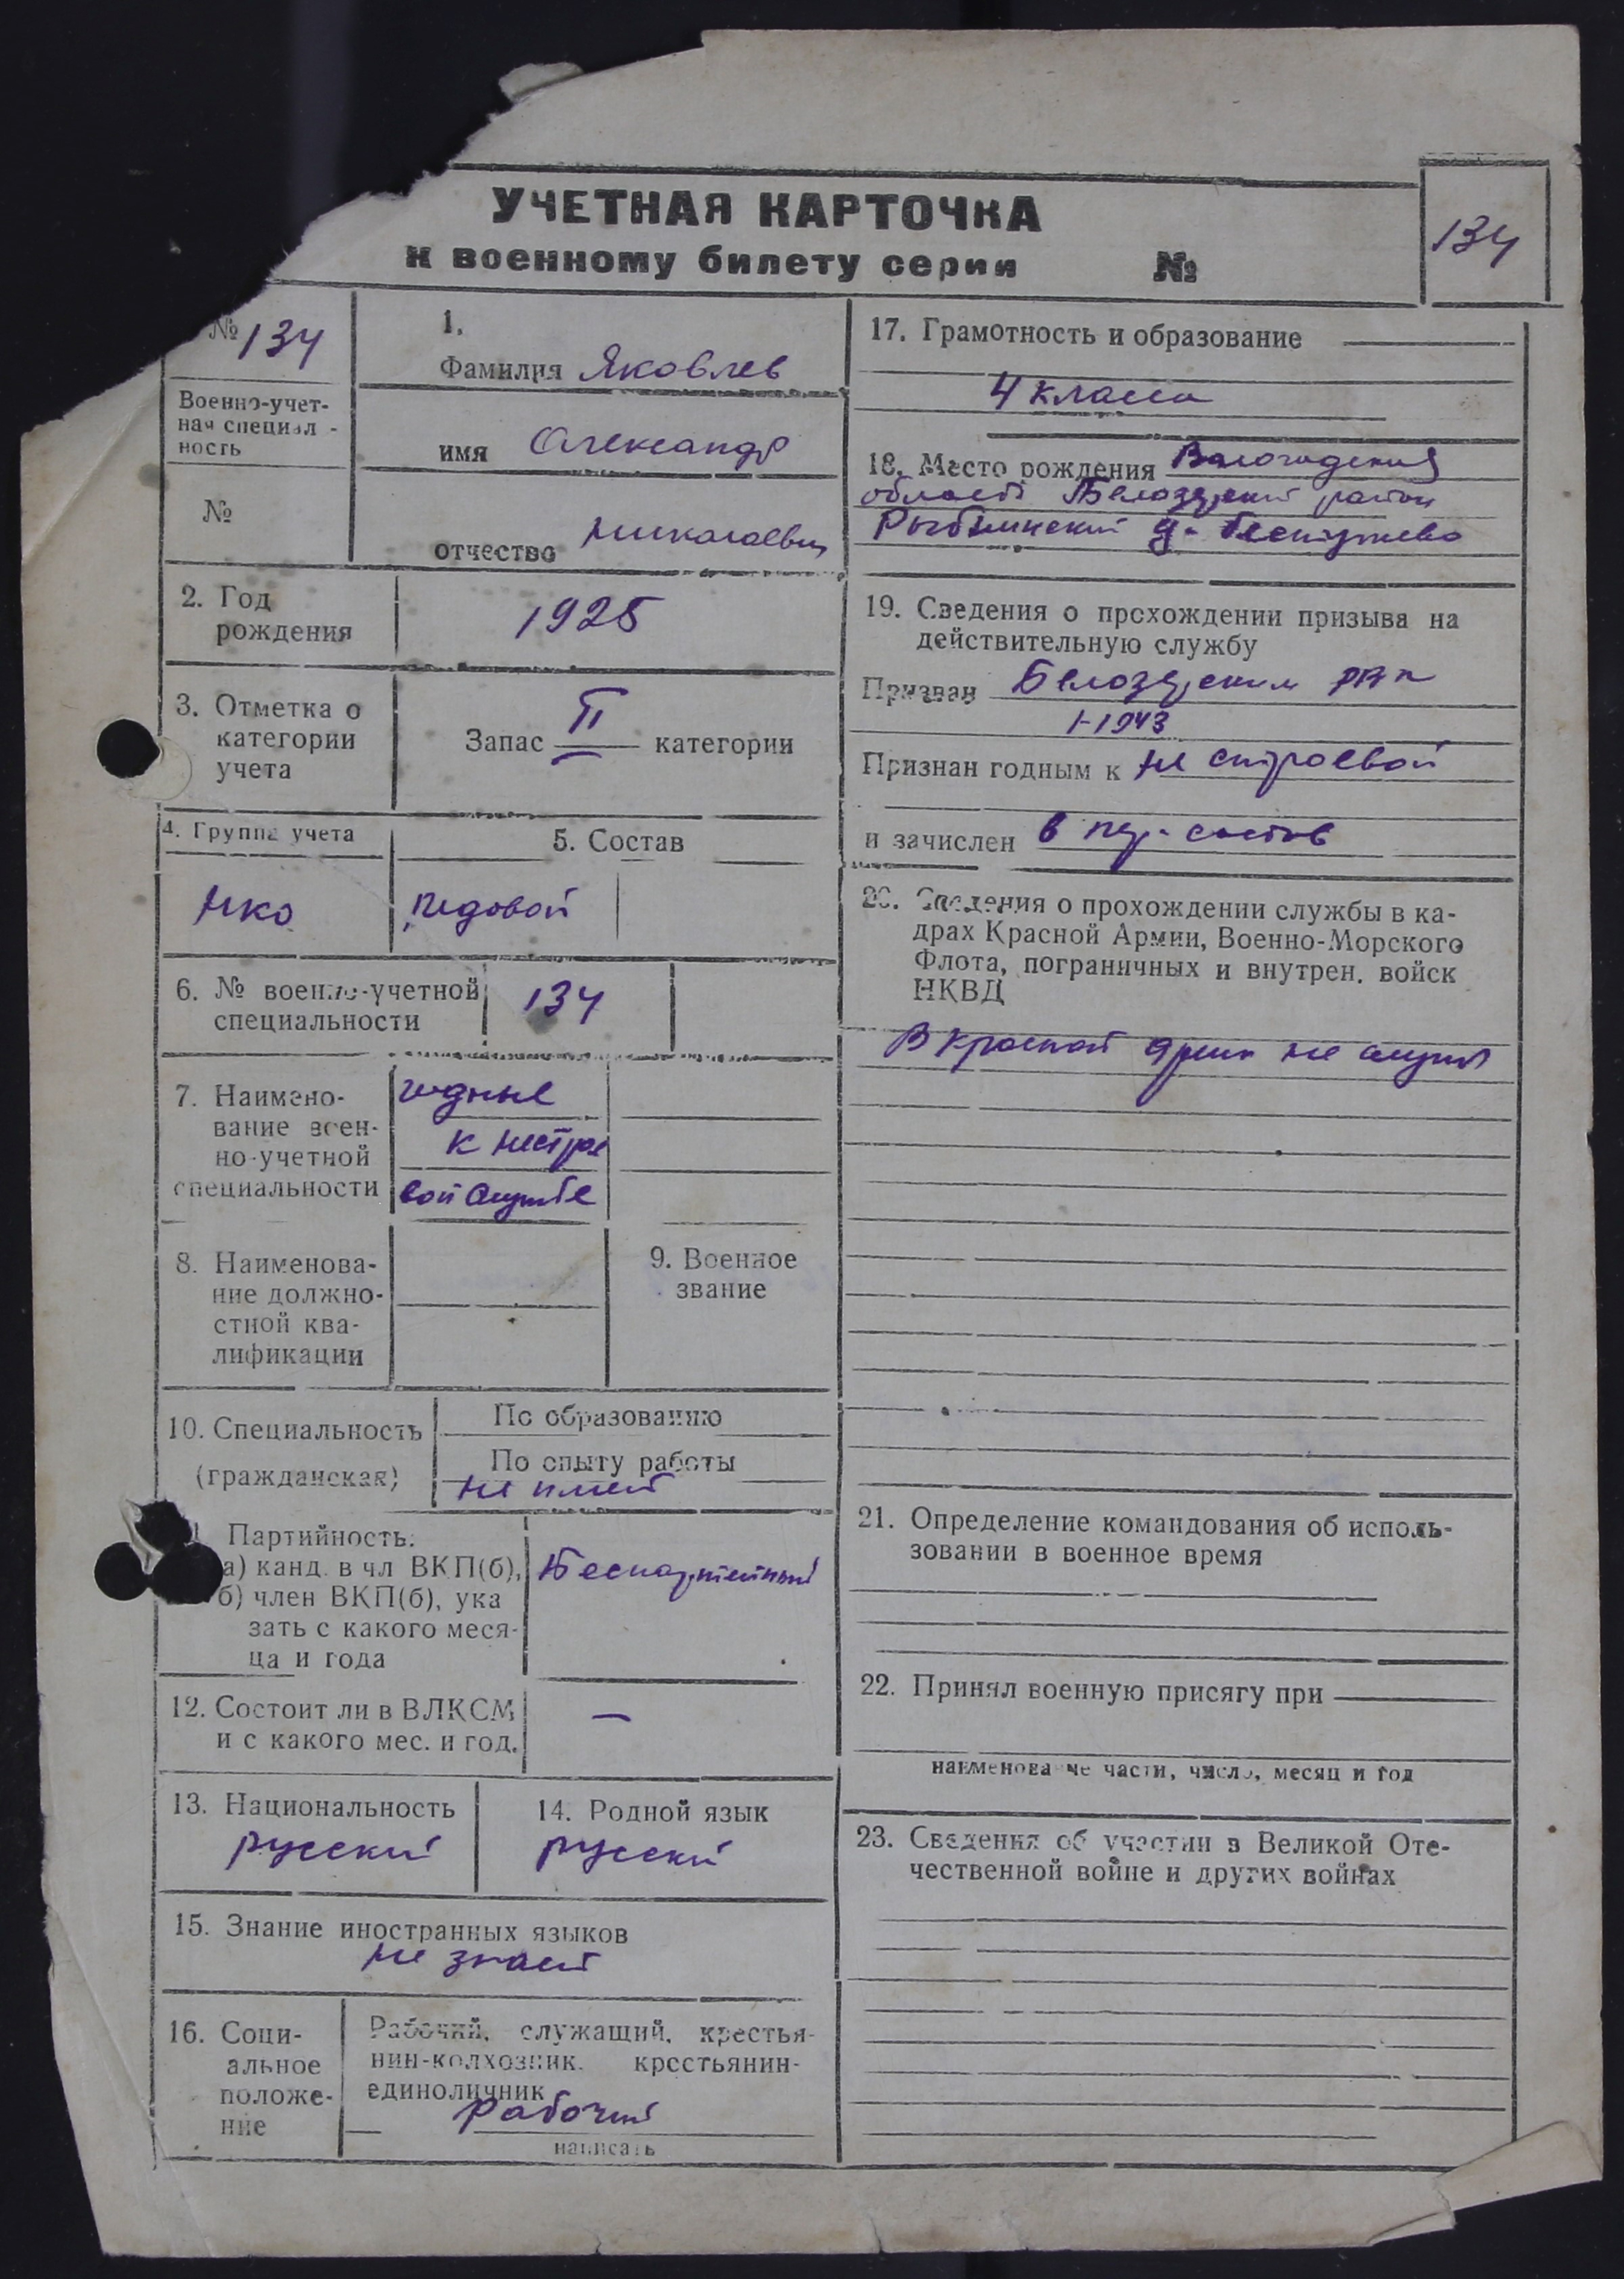 УЧЕТНАЯ КАРТОЧКА
к военному билету серии №
134
№ 134
Военно-учет-
ная специал-
ность
№
1.
Фамилия Яковлев
имя Олександр
отчество Николаевич
2. Год
рождения
1925
3. Отметка о
категории
учета
Запас II категории
4. Группа учета
НКО
5. Состав
рядовой
6. № военно-учетной
специальности
134
7. Наимено-
вание воен-
но-учетной
специальности
годные
к нестрое
вой службе
8. Наименова-
ние должно-
стной ква-
лификации
9. Военное
звание
10. Специальность
(гражданская)
По образованию
По опыту работы
не имеет
Партийность:
а) канд. в чл ВКП(б),
б) член ВКП(б), ука
зать с какого меся-
ца и года
Беспартейный
12. Состоит ли в ВЛКСМ
и с какого мес. и год.
—
13. Национальность
русский
14. Родной язык
русский
15. Знание иностранных языков
не знает
16. Соци-
альное
положе-
ние
Рабочий, служащий, крестья-
нин-колхозник, крестьянин-
единоличник
рабочий
написать
17. Грамотность и образование
4 класса
18. Место рождения Вологодский
область Белозерский район
Рыбинский д.
19. Сведения о прохождении призыва на
действительную службу
Призван Белозерским РВК
1-1943
Признан годным к не строевой
и зачислен в пер. состав
20. Сведения о прохождении службы в ка-
драх Красной Армии, Военно-Морского
Флота, пограничных и внутрен. войск
НКВД
В Красной армии не служил
21. Определение командования об исполь-
зовании в военное время
22. Принял военную присягу при
наименование части, число, месяц и год
23. Сведения об участии в Великой Оте-
чественной войне и других войнах